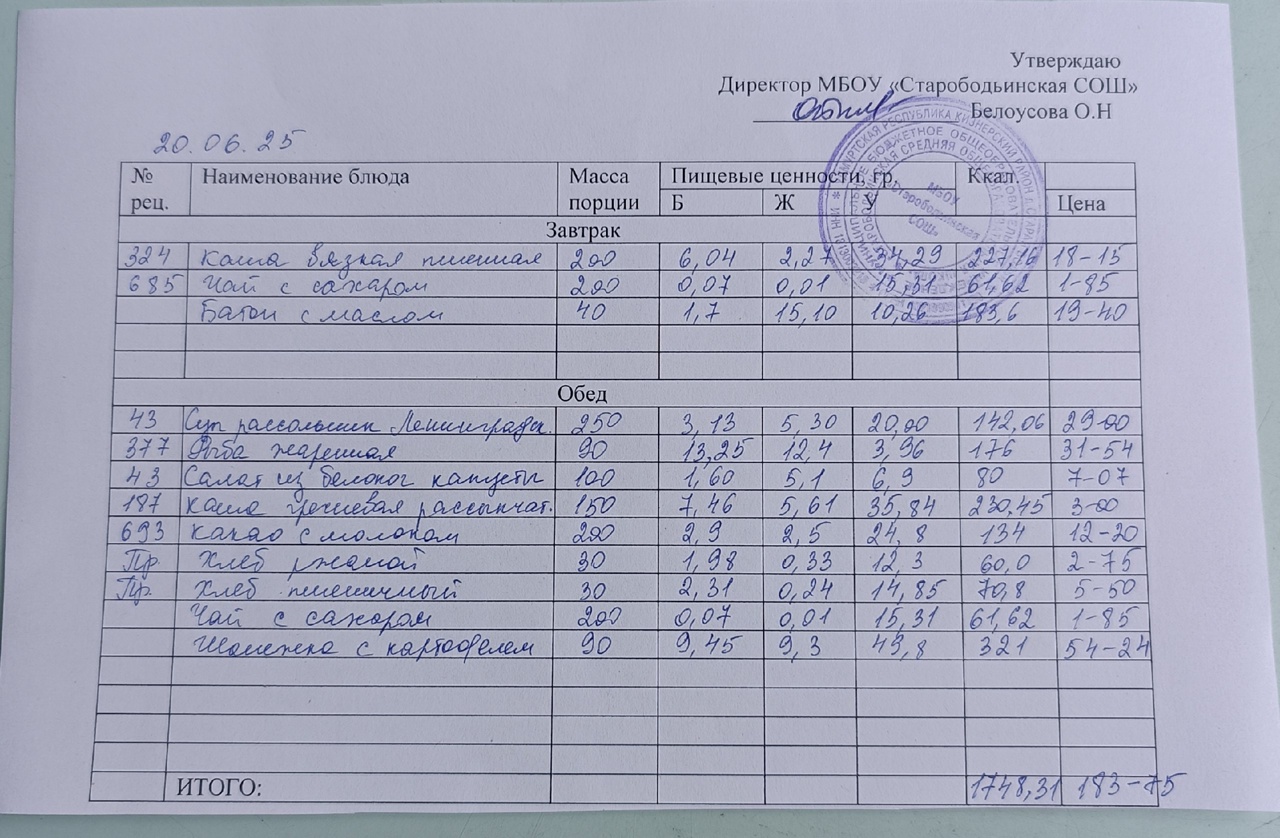 Утверждаю
Директор МБОУ «Старободьинская СОШ»
Белоусова О.Н
20.06.25
№ рец. Наименование блюда Масса порции Пищевые ценности, гр. Б Ж У Ккал. Цена
Завтрак
324 Каша вязкая пшенная 200 6,04 2,27 34,29 227,16 18-15
685 Чай с сахаром 200 0,07 0,01 15,31 61,62 1-85
Батон с маслом 40 1,7 15,10 10,26 183,6 19-40
Обед
43 Суп рассольник Ленинградск. 250 3,13 5,30 20,00 142,06 29-00
377 Рыба жаренная 90 13,25 12,4 3,96 176 31-54
43 Салат из белоког капусты 100 1,60 5,1 6,9 80 7-07
187 Каша гречневая рассыпчат. 150 7,46 5,61 35,84 230,45 3-00
693 Какао с молоком 200 2,9 2,5 24,8 134 12-20
Пр. Хлеб ржаной 30 1,98 0,33 12,3 60,0 2-75
Пр. Хлеб пшеничный 30 2,31 0,24 14,85 70,8 5-50
Чай с сахаром 200 0,07 0,01 15,31 61,62 1-85
Шанежка с картофелем 90 9,45 9,3 49,8 321 54-24
ИТОГО: 1748,31 183-75
МБОУ
«Старободьинская
СОШ»